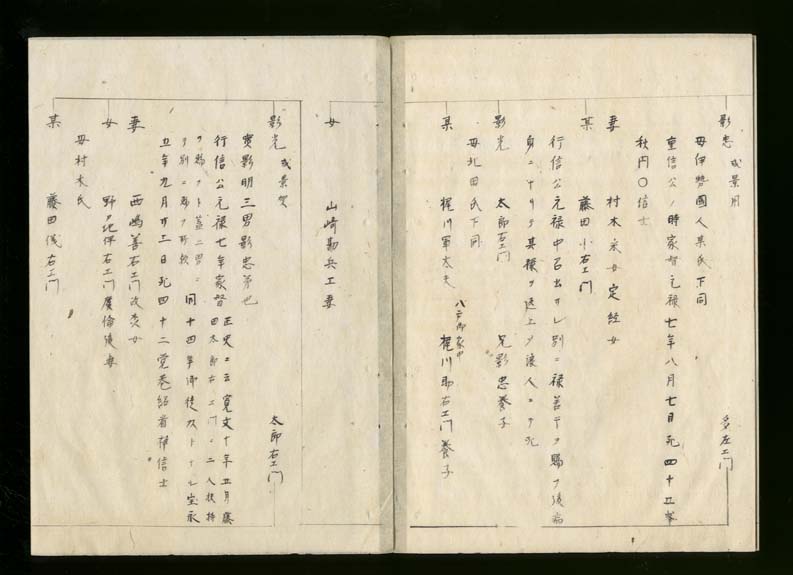 影忠 或景用 多左エ門
母伊勢國人某氏下同
重信公ノ時家督元禄七年八月七日死四十五歳
秋円〇信士
妻 村木采女定経女
某 藤田小右エ門
行信公元禄中召出サレ別ニ禄若干ヲ賜フ後病
身ニヨリテ其禄ヲ返上シ浪人ニテ死
影光 太郎右エ門 兄影忠養子
母北田氏下同
某 梶川軍太夫 八戸御家中 梶川助右エ門養子
女 山崎勘兵エ妻
影光 或景賀 太郎右エ門
實影明三男影忠弟也
行信公元禄七年家督 正史ニ云寛文十年五月藤
田太郎右エ門ニ二人扶持
ヲ賜フト蓋二男ニ
テ別ニ賜フ所歟
同十四年御徒頭トナル宝永
五年九月廿三日死四十二覚巷紹着禅信士
妻 西嶋善右エ門改女
女 野々地伴右エ門廣倫後妻
母村木氏
某 藤田儀右エ門